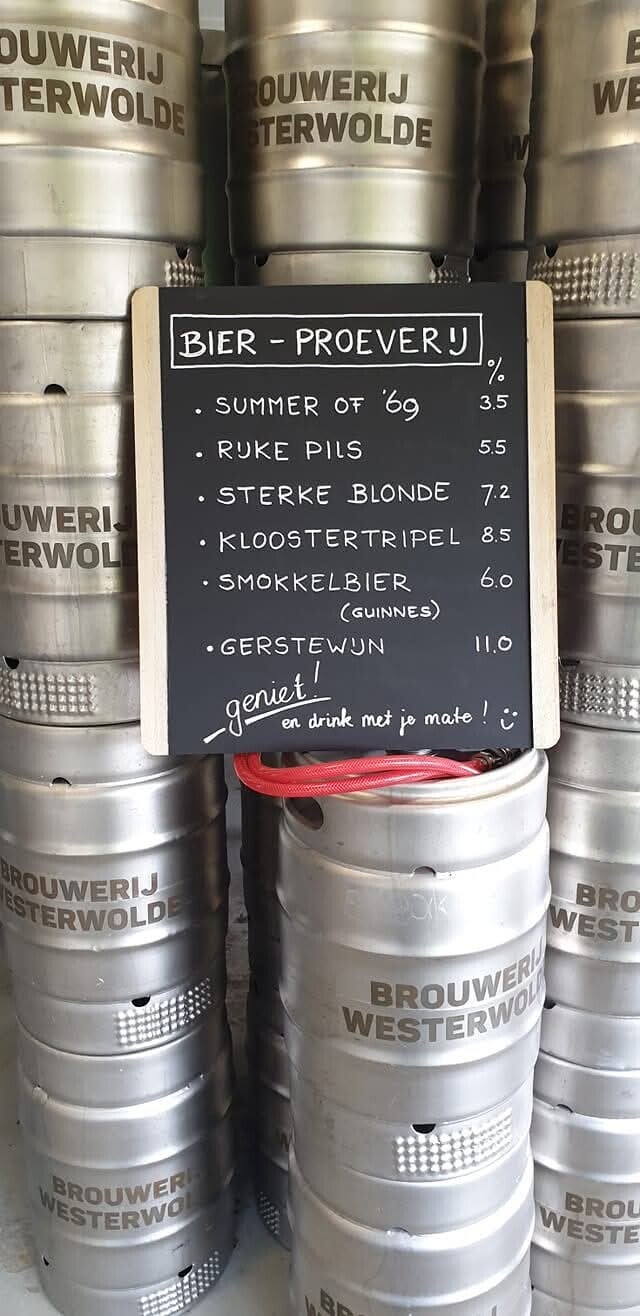 OUWERIJ
TERWOLDE
ROUWERIJ
STERWOLDE
WE
BIER - PROEVERIJ
%
• SUMMER OF '69 3.5
• RIJKE PILS 5.5
• STERKE BLONDE 7.2
• KLOOSTERTRIPEL 8.5
• SMOKKELBIER 6.0
(GUINNES)
• GERSTEWIJN 11.0
geniet!
en drink met je mate!
UWERIJ
ERWOL
BROU
ESTE
BROUWERIJ
WESTERWOLDE
BROUWERIJ
WESTERWOLD
BRO
WEST
BROUWERI
WESTERWOL
BROU
WESTE
BROU